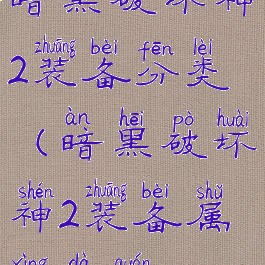 暗黑破坏神
zhuāng bèi fēn lèi
2装备分类
àn hēi pò huài
(暗黑破坏
shén zhuāng bèi shǔ
神2装备属
xìng dà quán